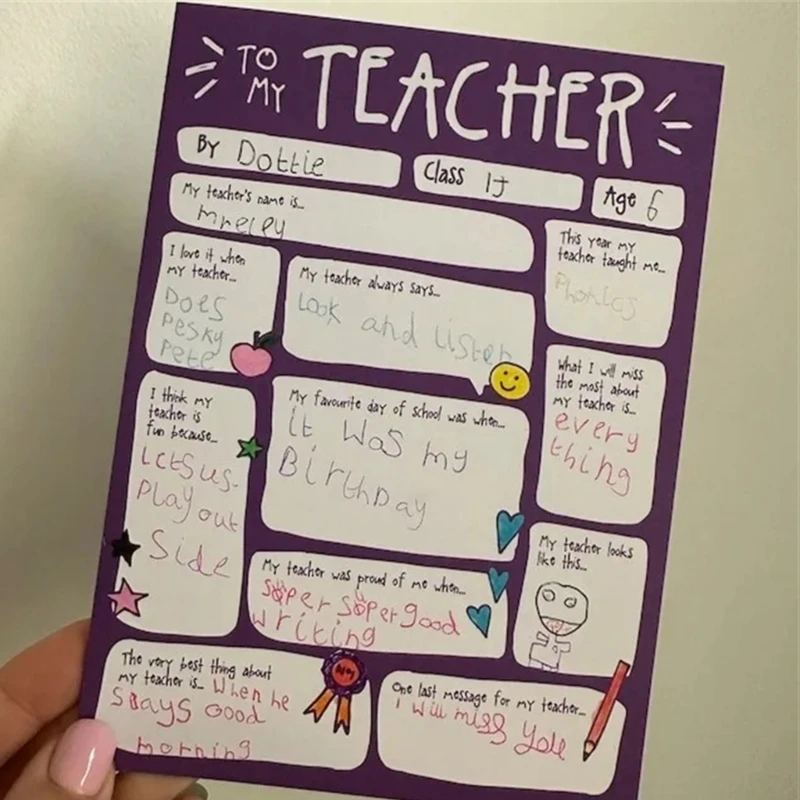 TO
MY
TEACHER
BY Dottie
Class 1J
Age 6
My teacher's name is...
mreley
This year my
teacher taught me...
Phonics
I love it when
my teacher...
Does
Pesky
Pete
My teacher always says...
Look and listen
What I will miss
the most about
my teacher is...
every
thing
I think my
teacher is
fun because...
Letsus
Play out
Side
My favourite day of school was when...
it was my
Birthday
My teacher looks
like this...
My teacher was proud of me when...
super super good
writing
The very best thing about
my teacher is... when he
says Good
morning
One last message for my teacher...
I will miss you